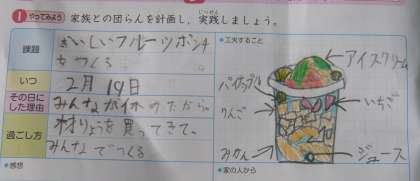 1 やってみよう 家族との団らんを計画し、実践しましょう。
じっせん
課題
おいしいフルーツポンチ
をつくる
いつ
2月19日
その日に
した理由
みんなが休みのだから
過ごし方
材りょうを買ってきて、
みんなでつくる
*感想
*工夫すること
アイスクリーム
パイナップル
りんご
いちご
みかん
ジュース
*家の人から